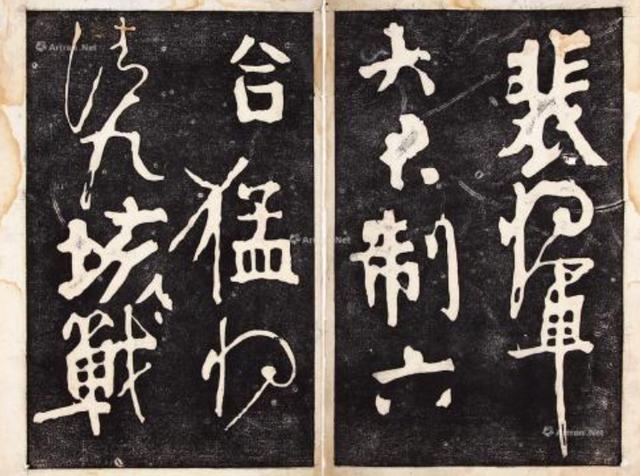 裴將軍
大君制六
合猛將
清九垓戰
Artron.Net
Artron.Net
Artron.Net